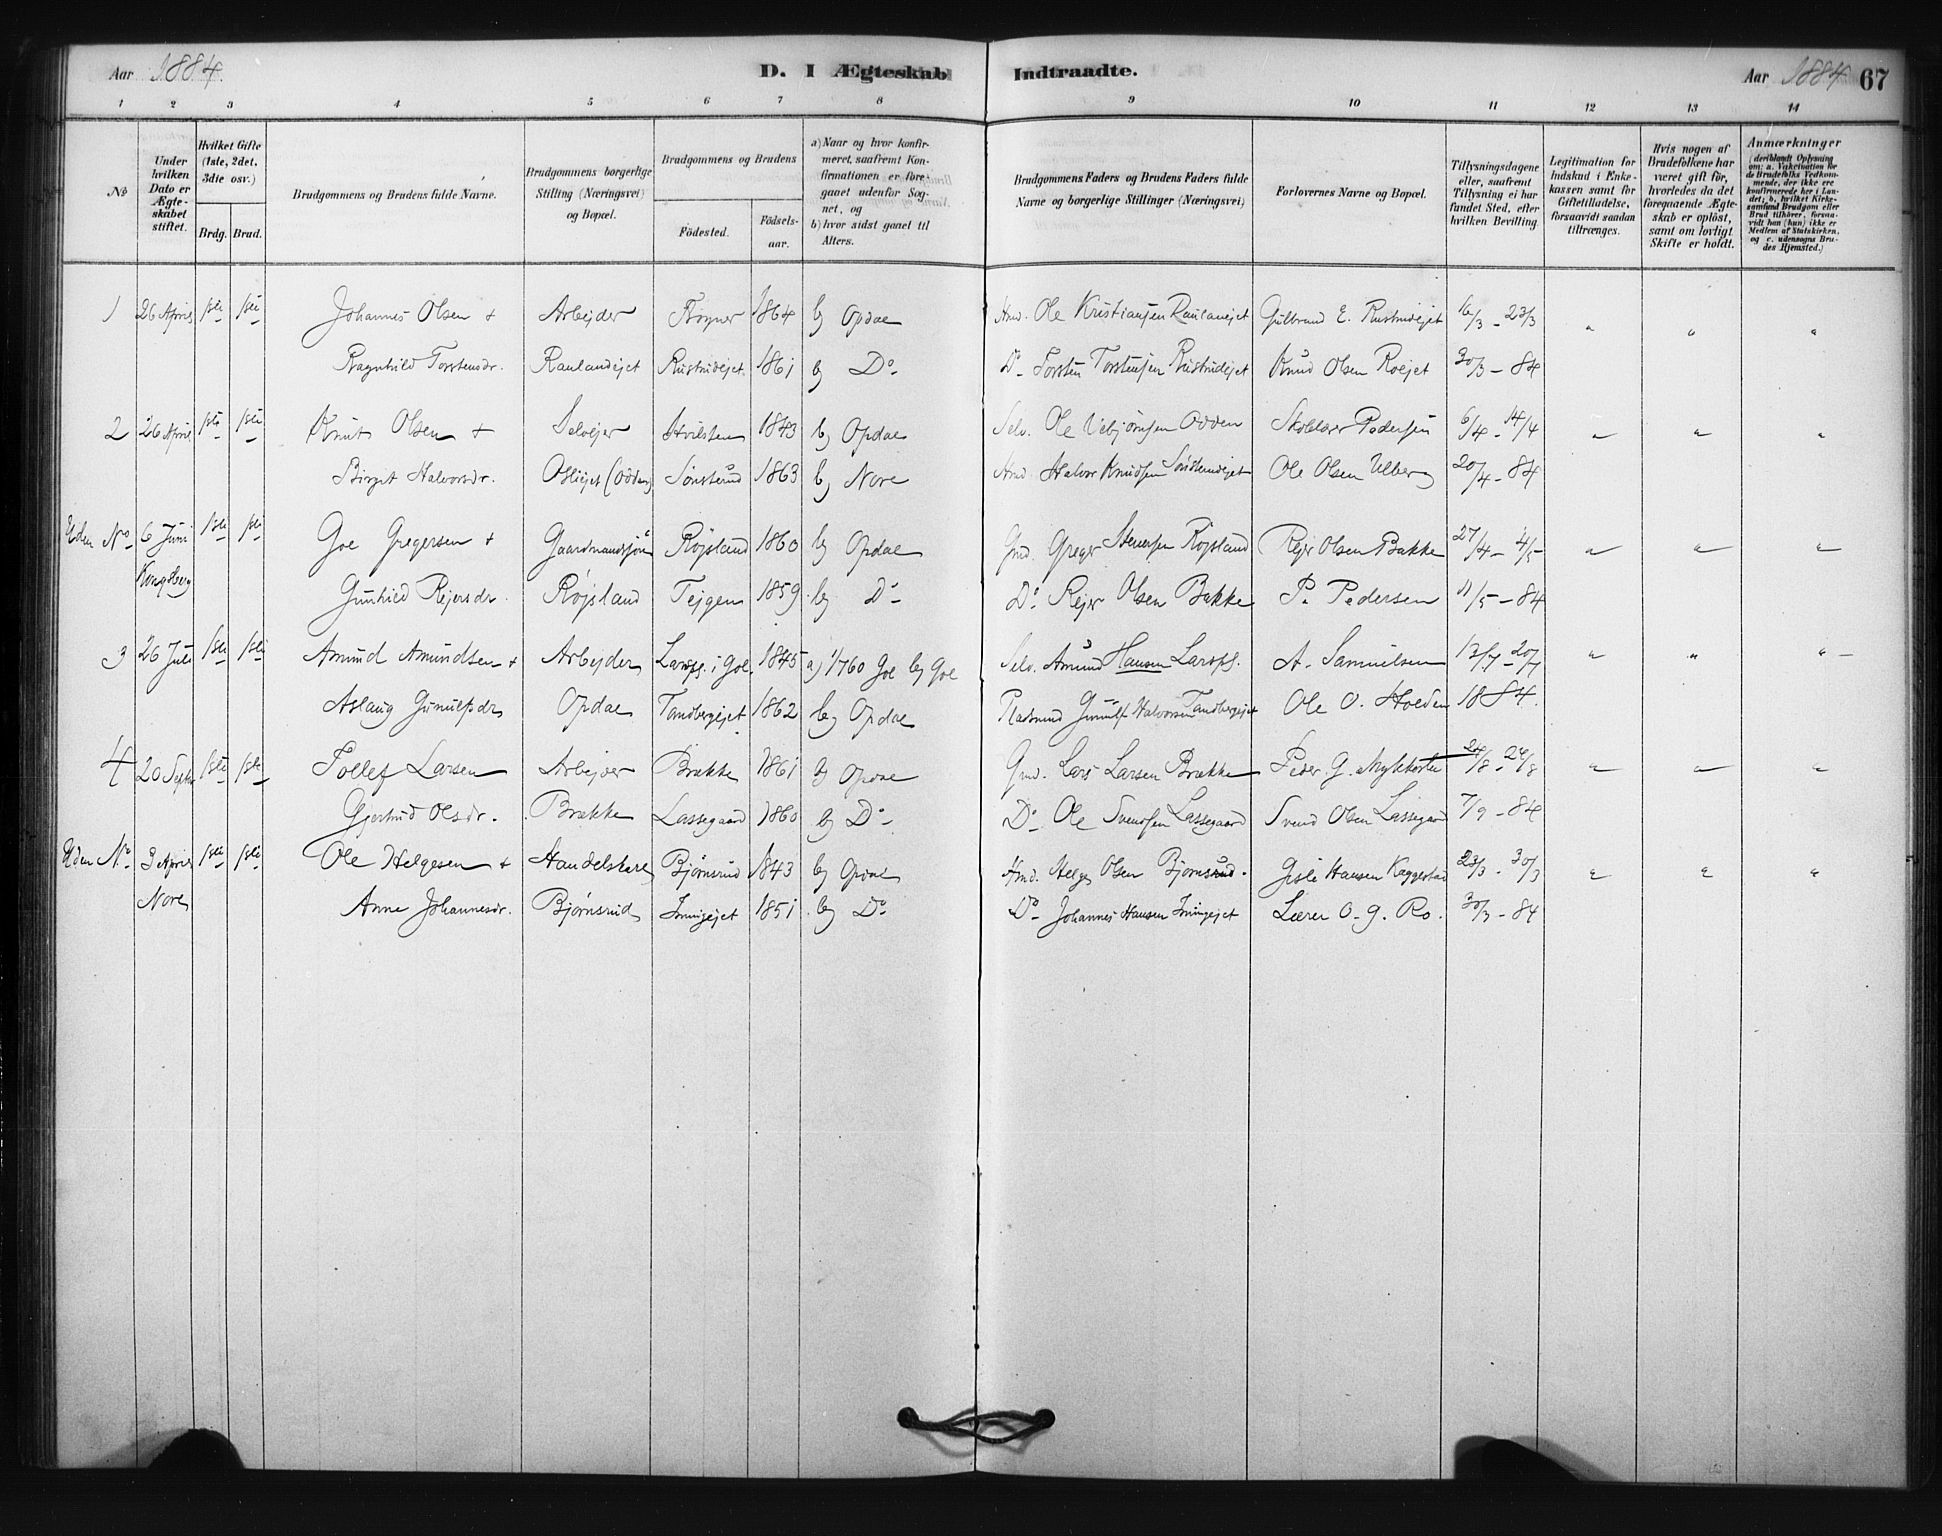 Aar 1884. D. I Ægteskab Indtraadte. Aar 1884 67
1 2 3 4 5 6 7 8 9 10 11 12 13 14
№
Under hvilken Dato er Ægteskabet stiftet.
Hvilket Gifte (1ste, 2det, 3die osv.)
Brdg. Brud.
Brudgommens og Brudens fulde Navne.
Brudgommens borgerlige Stilling (Næringsvei) og Bopæl.
Brudgommens og Brudens
Födested. Födsels-aar.
a) Naar og hvor konfirmeret, saafremt Konfirmationen er foregaaet udenför Sognet, og
b) hvor sidst gaaet til Alters.
Brudgommens Faders og Brudens Faders fulde Navne og borgerlige Stillinger (Næringsvei)
Forlovernes Navne og Bopæl.
Tillysningsdagene eller, saafremt Tillysning ei har fundet Sted, efter hvilken Bevilling.
Legitimation for Indskud i Enkekassen samt for Giftetilladelse, forsaavidt saadan tiltrænges.
Hvis nogen af Brudefolkene har været gift før, hvorledes da det foregaaende Ægteskab er oplöst, samt om lovligt Skifte er holdt.
Anmærkninger (deriblandt Oplysning om: a. Vakcination for de Brudefolks Vedkommende, der ikke ere konfirmerede her i Landet; b. hvilket Kirkesamfund Brudgom eller Brud tilhörer, forsaavidt han (hun) ikke er Medlem af Statskirken, og c. udensogns Brudes Hjemsted.)
1 26 April 1ste 1ste Johannes Olsen + Arbejder Fogner 1864 b) Opdal Hmd. Ole Kristiansen Raulanejet Gulbrand E. Rustudejet 16/3 - 23/3 " " "
Ragnhild Torstensdr. Raulandejet Rustudejet 1861 b) Do- Do- Torsten Torstensen Rustudejet Knud Olsen Roejet 30/3 - 84
2 26 April 1ste 1ste Knut Olsen + Selvejer Hvilsten 1843 b) Opdal Selv. Ole Vebjørnsen Odden Skolelærer Pedersen 6/4 - 14/4 " " "
Birgit Halvorsdr. (Odden) Sønsterud 1863 b) Nore Hmd. Halvor Knudsen Ole Olsen Ulberg 20/4 - 84
Uden No. 6 Juni 1ste 1ste Goe Gregersen + Gaardmandssøn Røjsland 1860 b) Opdal Gmd. Greger Stenersen Röjsland Rejer Olsen Bakke 27/4 - 4/5 " " "
Kongsberg Gunhild Rejersdr. Røjsland Tejgen 1859 b) Do- Do. Rejer Olsen Bakke P. Pedersen 11/5 - 84
3 26 Juli 1ste 1ste Amund Amundsen + Arbejder Larspl. i Gol. 1845 a) 1/760 Gol b) Gol Selv. Amund Hansen Larspl. A. Samuelsen 13/7 - 20/7 " " "
Aslaug Gunulfsdr Opdal Tandbergejet 1862 b) Opdal Pladsmd Gunulf Halvorsen Tandbergejet Ole O. Holden 1884.
4 20 Septbr 1ste 1ste Tollef Larsen Arbejder Brække 1861 b) Opdal Gmd. Lars Larsen Brække Peder G. 24/8 " " "
Gjertrud Olsdr. Brække Lassegaard 1860 b) Do- Do- Ole Svendsen Lassegaard Svend Olsen Lassegaard 7/9 - 84
Uden No. 3 April 1ste 1ste Ole Helgesen + Handelskarl Bjørnsrud 1843 b) Opdal Hmd. Helge Olsen Bjørnsrud. Gisle Hansen Kaggestad 23/3 - 30/3 " " "
Nore Anne Johannesdr. Bjørnsrud Imingejet 1851 b) Do- Do- Johannes Hansen Imingejet Lærer O. G. Ro. 30/3 - 84